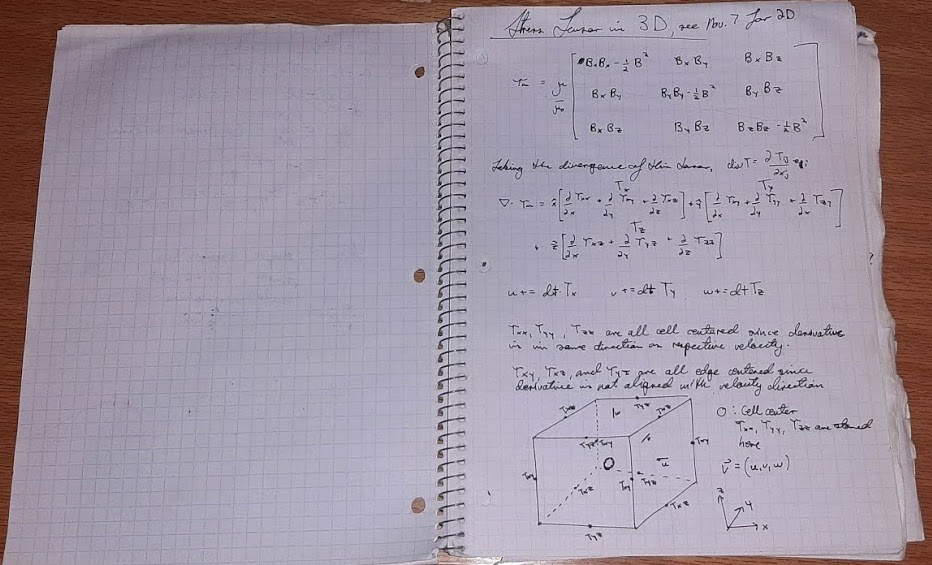 Stress Tensor in 3D, see Nov. 7 for 2D
Tm = μ/μ0 [ BxBx - 1/2 B²   BxBy   BxBz
BxBy   ByBy - 1/2 B²   ByBz
BxBz   ByBz   BzBz - 1/2 B² ]
Taking the divergence of this tensor, div T = ∂Tij/∂xj
Tx   Ty
∇· Tm = x̂[∂/∂x Txx + ∂/∂y Txy + ∂/∂z Txz] + ŷ[∂/∂x Txy + ∂/∂y Tyy + ∂/∂x Tzy]
Tz
+ ẑ[∂/∂x Txz + ∂/∂y Tyz + ∂/∂z Tzz]
u += dt Tx   v += dt Ty   w += dt Tz
Txx, Tyy, Tzz are all cell centered since derivative
is in same direction as respective velocity.
Txy, Txz, and Tyz are all edge centered since
derivative is not aligned with velocity direction
O : Cell center
Txx, Tyy, Tzz are stored
here
v = (u, v, w)
Tyz
Txz
Txz
w
v
Tyz
Txy
Txy
O
u
Txy
Txy
Tyz
Txz
Txz
Tyz
z
y
x